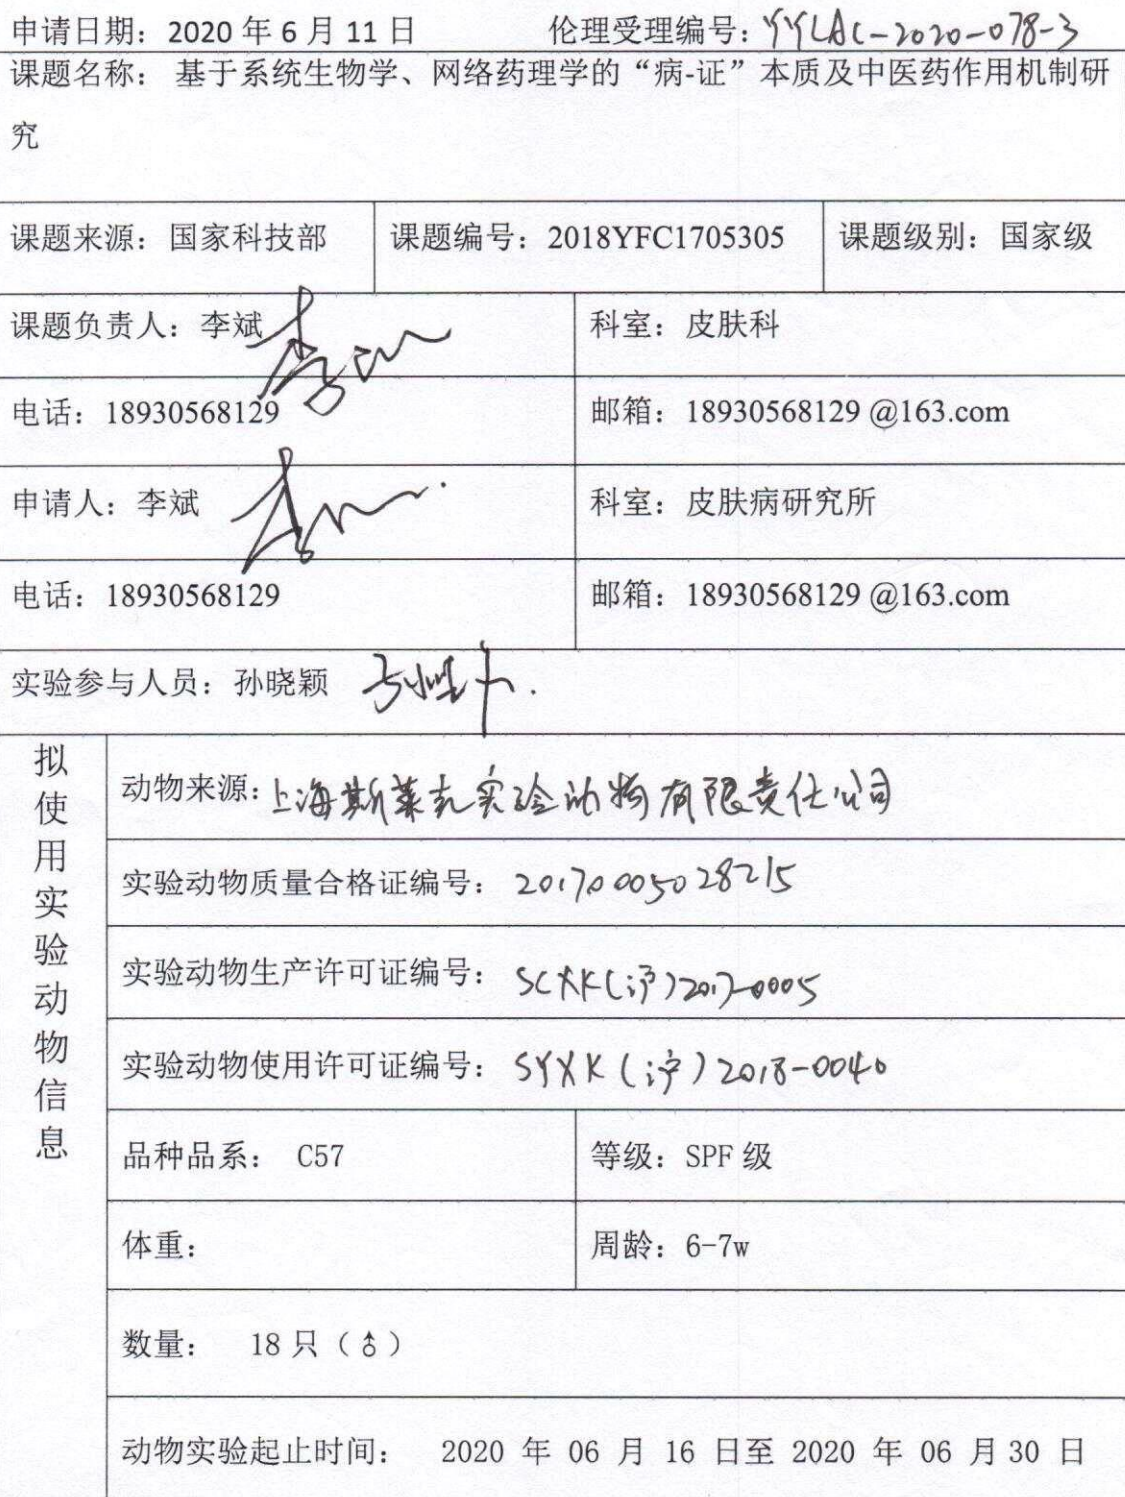 申请日期：2020 年 6 月 11 日 伦理受理编号：YYLAC-2020-078-3
课题名称： 基于系统生物学、网络药理学的“病-证”本质及中医药作用机制研
究
课题来源：国家科技部 课题编号：2018YFC1705305 课题级别：国家级
课题负责人：李斌 科室：皮肤科
电话：18930568129 邮箱：18930568129 @163.com
申请人：李斌 科室：皮肤病研究所
电话：18930568129 邮箱：18930568129 @163.com
实验参与人员：孙晓颖
拟使用实验动物信息
动物来源：上海斯莱克实验动物有限责任公司
实验动物质量合格证编号：20170005028215
实验动物生产许可证编号：SCXK(沪)2017-0005
实验动物使用许可证编号：SYXK(沪)2018-0040
品种品系： C57 等级：SPF 级
体重： 周龄：6-7w
数量： 18 只（♂）
动物实验起止时间： 2020 年 06 月 16 日至 2020 年 06 月 30 日